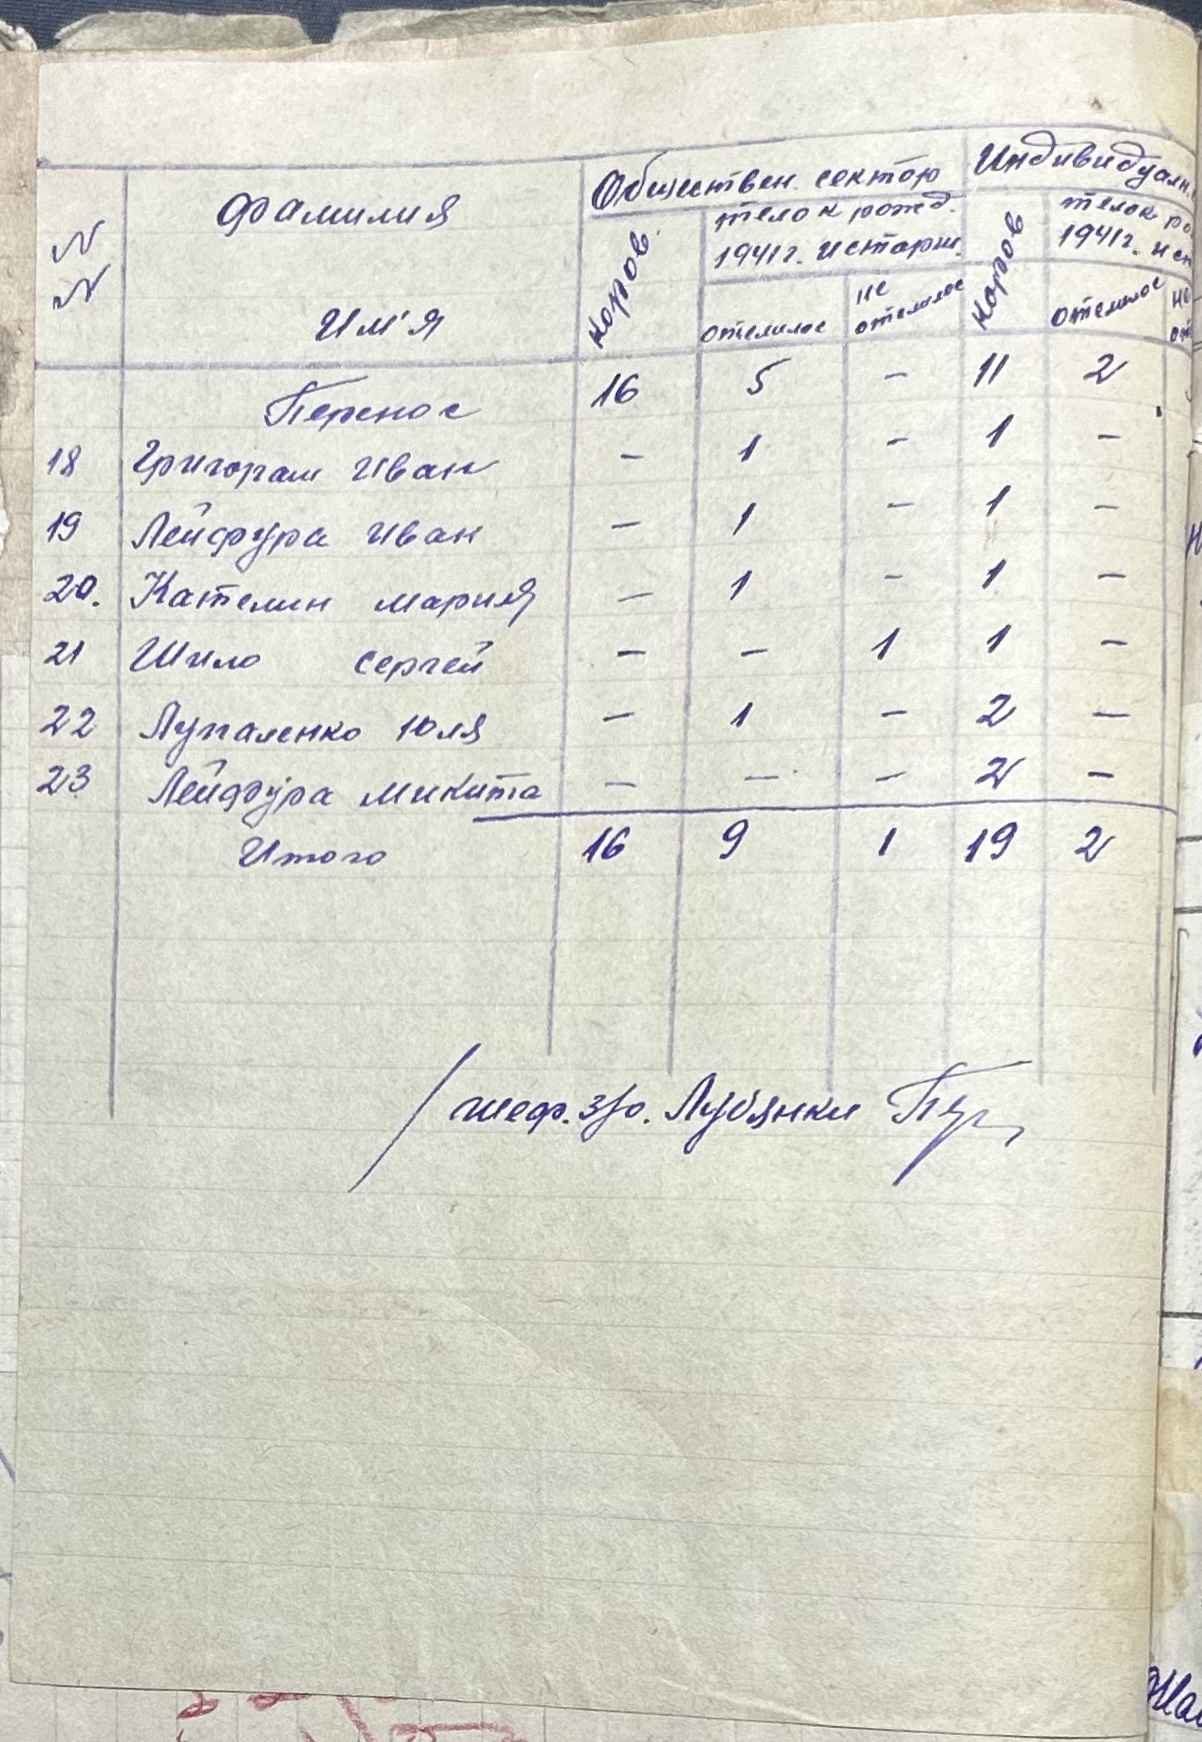 Обществен. сектор Индивидуалн.
№№ Фамилия Им'я коров телок рожд. 1941г. и старш. коров телок ро 1941г. и ст
отелилос не отелилос отелилос не от
Перенос 16 5 – 11 2
18 Григораш Иван – 1 – 1 –
19 Лейфура Иван – 1 – 1 –
20. Кателин Мария – 1 – 1 –
21 Шило Сергей – – 1 1 –
22 Лупаленко Юля – 1 – 2 –
23 Лейфура Микита – – – 2 –
Итого 16 9 1 19 2
шеф. з/о. Лубянки